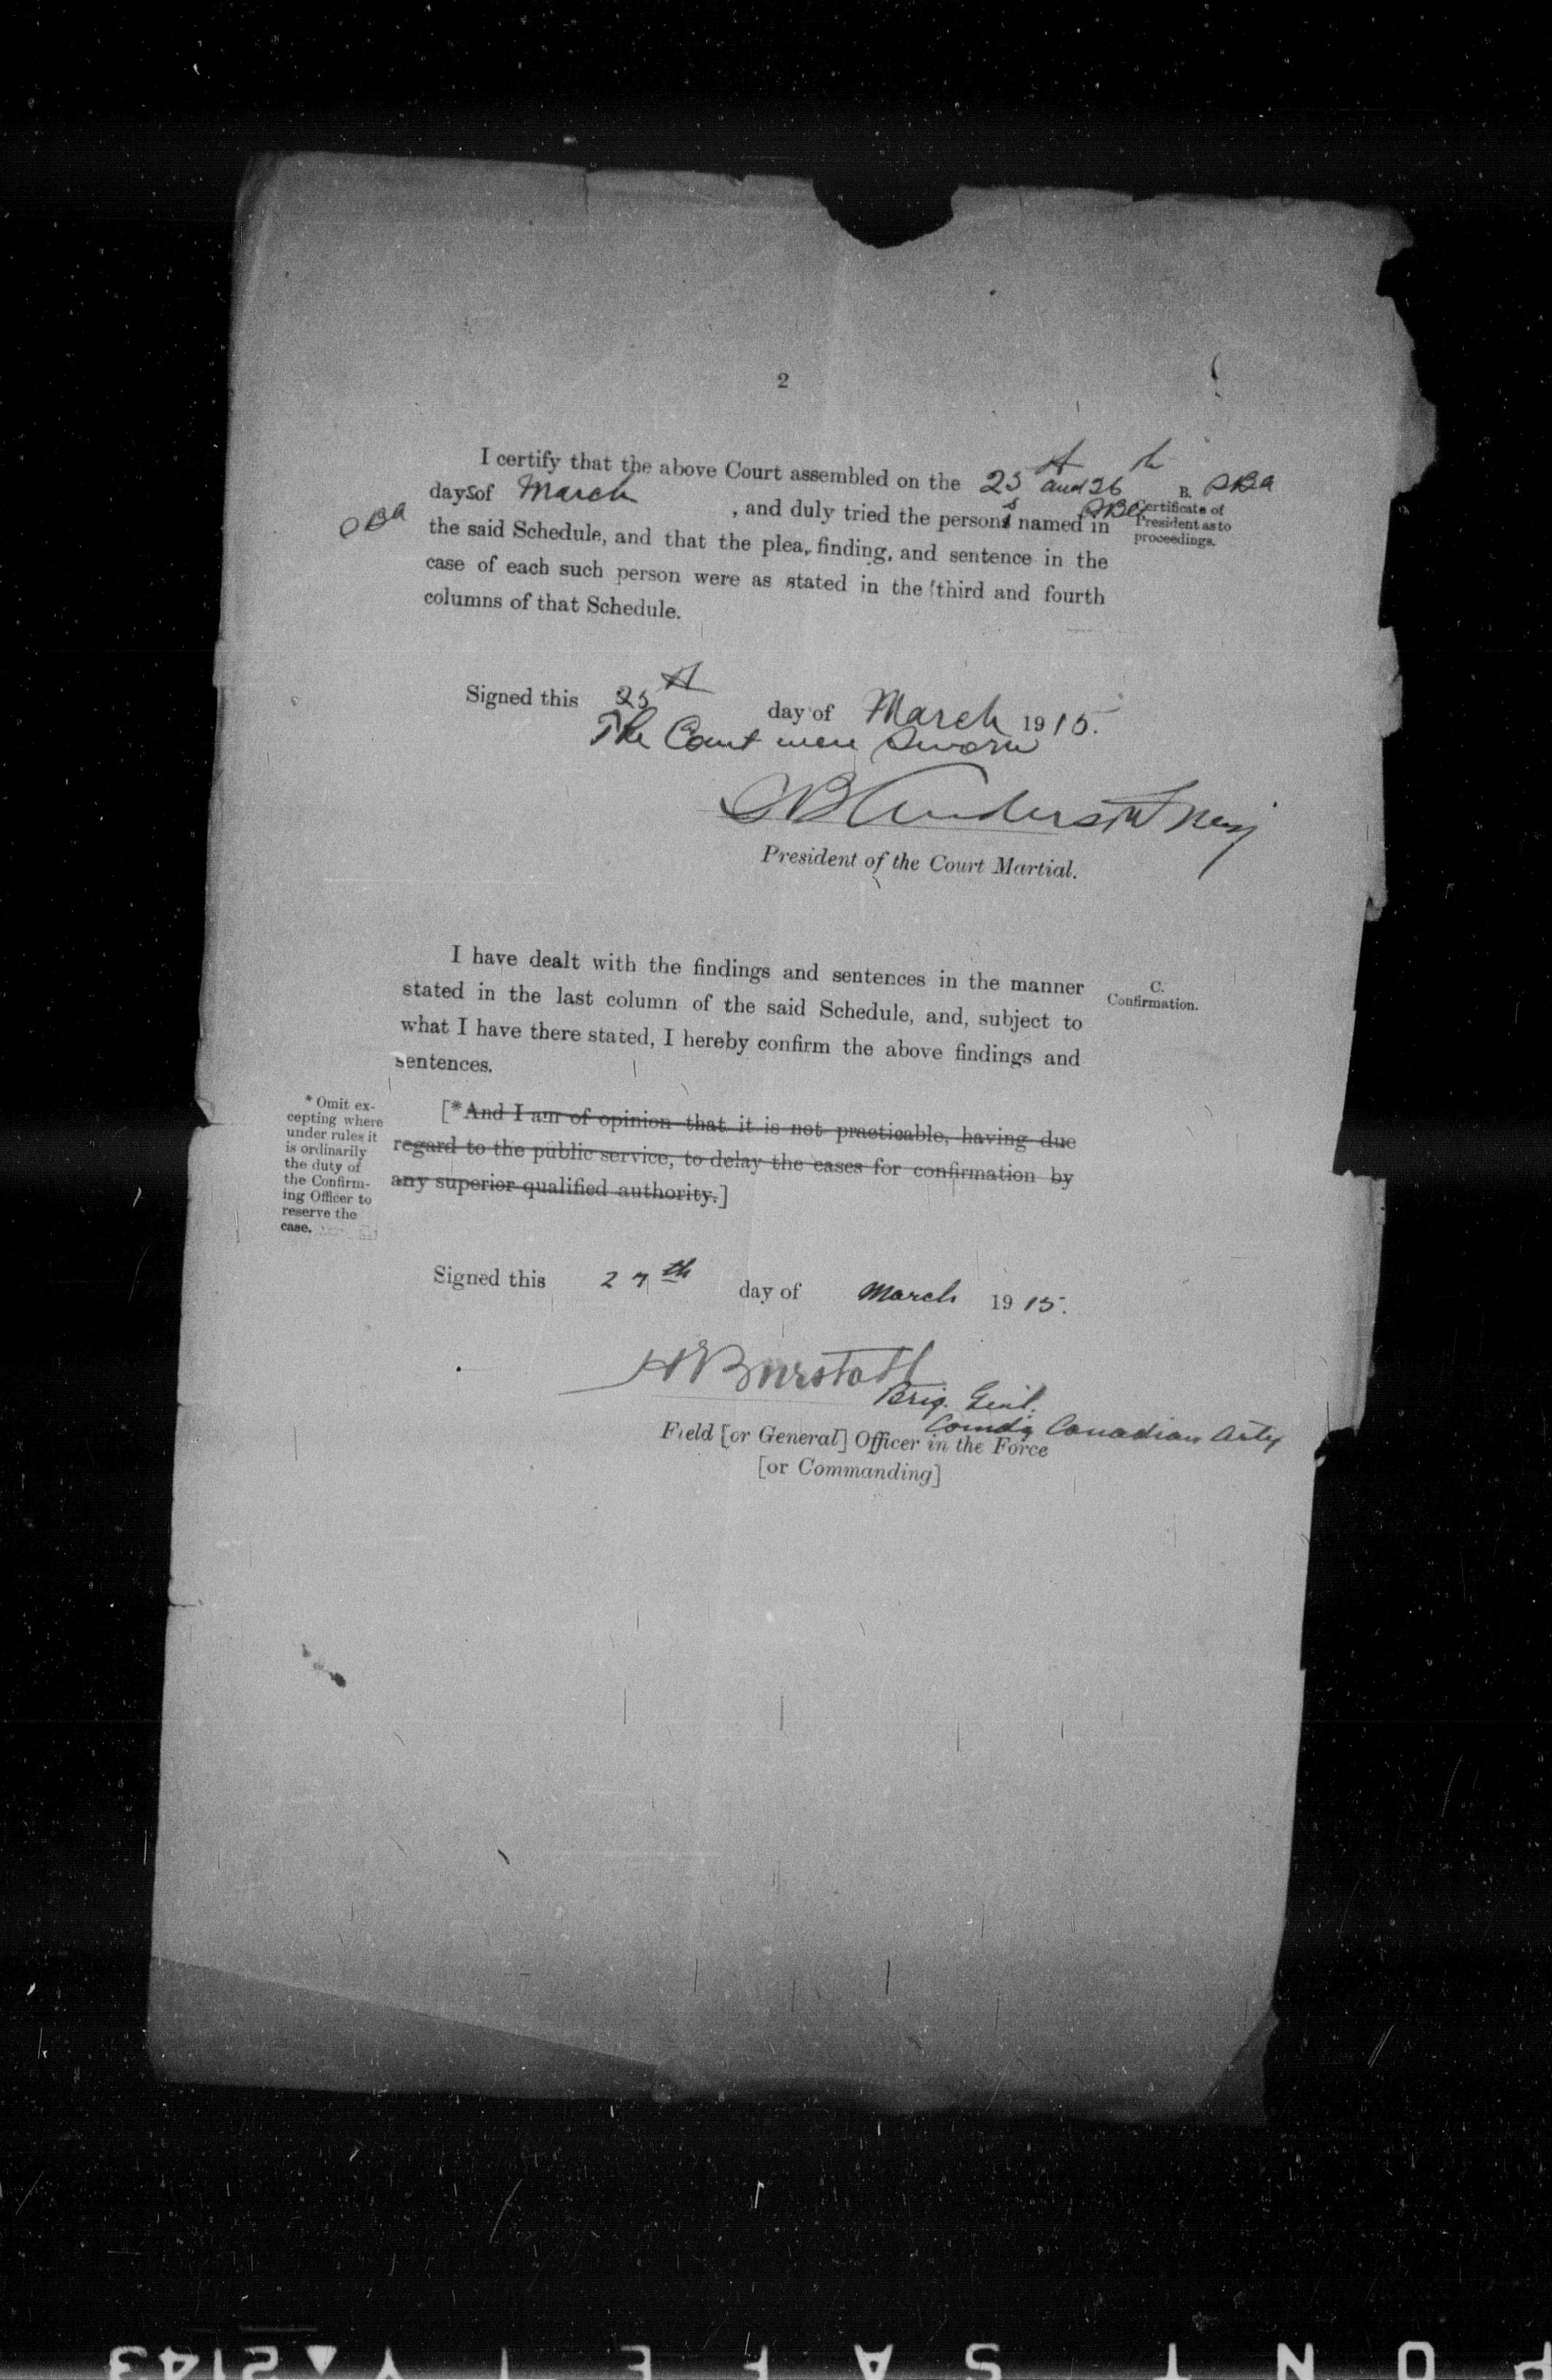 2
I certify that the above Court assembled on the 25th and 26th
B. SBA
Certificate of
President as to
proceedings.
days of March , and duly tried the persons named in SBA
SBA
the said Schedule, and that the plea, finding, and sentence in the
case of each such person were as stated in the third and fourth
columns of that Schedule.
Signed this 25th day of March 1915.
The Court were sworn
SB Anderson Maj
President of the Court Martial.
I have dealt with the findings and sentences in the manner
stated in the last column of the said Schedule, and, subject to
what I have there stated, I hereby confirm the above findings and
sentences.
C.
Confirmation.
* Omit ex-
cepting where
under rules it
is ordinarily
the duty of
the Confirm-
ing Officer to
reserve the
case.
[*And I am of opinion that it is not practicable, having due
regard to the public service, to delay the cases for confirmation by
any superior qualified authority.]
Signed this 27th day of March 1915.
HBurstall
Brig. Genl.
Comdg Canadian Arty
Field [or General] Officer in the Force
[or Commanding]
PONT SAFETY▲2143